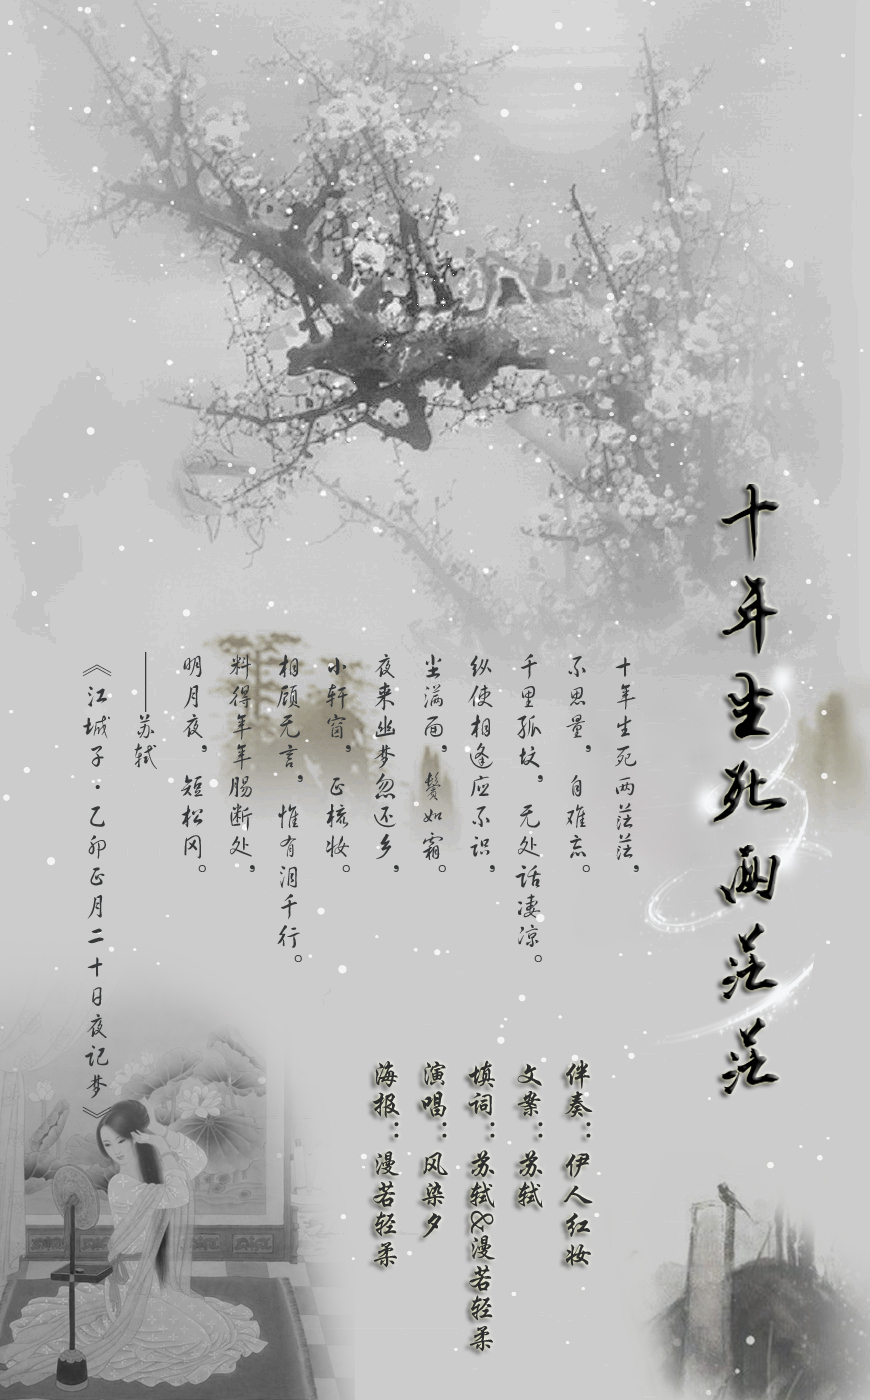 十年生死两茫茫
十年生死两茫茫，
不思量，自难忘。
千里孤坟，无处话凄凉。
纵使相逢应不识，
尘满面，鬓如霜。
夜来幽梦忽还乡，
小轩窗，正梳妆。
相顾无言，惟有泪千行。
料得年年肠断处，
明月夜，短松冈。
——苏轼
《江城子·乙卯正月二十日夜记梦》
伴奏：伊人红妆
文案：苏轼
填词：苏轼&漫若轻柔
演唱：风染夕
海报：漫若轻柔